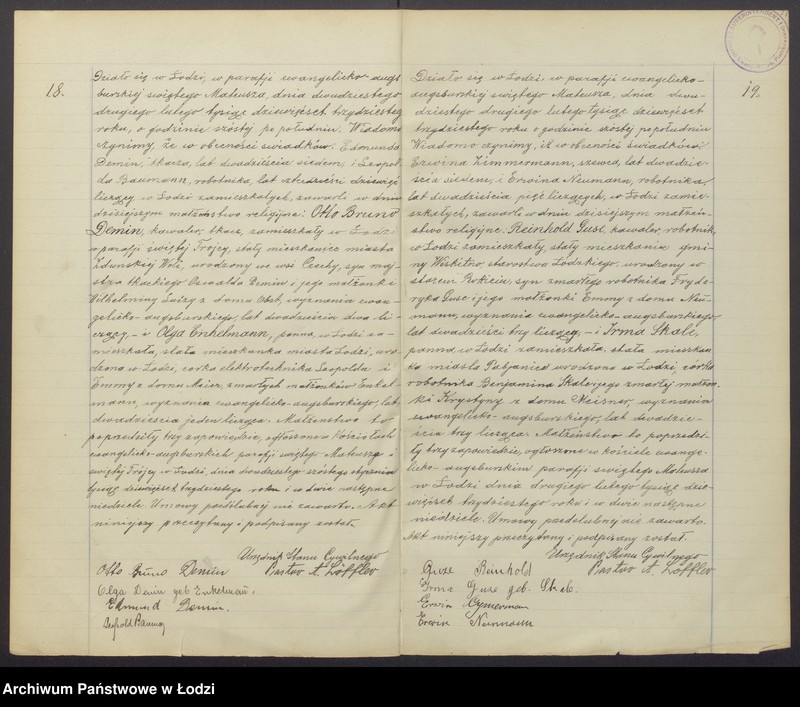 18.
Działo się w Łodzi, w parafji ewangelicko-augs
burskiej świętego Mateusza, dnia dwudziestego
drugiego lutego tysiąc dziewięćset trzydziestego
roku, o godzinie szóstej po południu. Wiadomo
czynimy, że w obecności świadków: Edmunda
Demin, tkacza, lat dwadzieścia siedem, i Leopol-
da Baumann, robotnika, lat czterdzieści dziewięć
liczący, w Łodzi zamieszkałych, zawarli w dniu
dzisiejszym małżeństwo religijne: Otto Bruno
Demin, kawaler, tkacz, zamieszkały w Łodzi
w parafji świętej Trójcy, stały mieszkaniec miasta
Zduńskiej Woli, urodzony we wsi Czechy, syn maj-
stra tkackiego Oswalda Demin i jego małżonki
Wilhelminy Luizy z domu Obst, wyznania ewan-
gelicko-augsburskiego, lat dwadzieścia dwa li-
czący, – i Olga Enkelmann, panna, w Łodzi za-
mieszkała, stała mieszkanka miasta Łodzi, uro
dzona w Łodzi, córka elektrotechnika Leopolda i
Emmy z domu Maier, zmarłych małżonków Enkel-
mann, wyznania ewangelicko-augsburskiego, lat
dwadzieścia jeden licząca. Małżeństwo to
poprzedziły trzy zapowiedzie, ogłoszone w kościołach
ewangelicko-augsburskich parafji świętego Mateusza i
świętej Trójcy w Łodzi, dnia dwudziestego szóstego stycznia
tysiąc dziewięćset trzydziestego roku i w dwie następne
niedziele. Umowy przedślubnej nie zawarto. Akt
niniejszy przeczytany i podpisany został.
Urzędnik Stanu Cywilnego
Otto Bruno Demin Pastor A. Löffler
Olga Demin geb Enkelmann
Edmund Demin.
Leopold Bauman
19.
Działo się w Łodzi w parafji ewangelicko-
augsburskiej świętego Mateusza, dnia dwu-
dziestego drugiego lutego tysiąc dziewięćset
trzydziestego roku o godzinie szóstej po południu
Wiadomo czynimy, iż w obecności świadków:
Erwina Zimmermann, szewca, lat dwadzie-
ścia siedem, i Erwina Neumann, robotnika,
lat dwadzieścia, pięć liczących, w Łodzi zamie-
szkałych, zawarli w dniu dzisiejszym małżeń-
stwo religijne: Reinhold Guse, kawaler, robotnik,
w Łodzi zamieszkały, stały mieszkaniec gmi-
ny Wiskitno, starostwa Łódzkiego, urodzony w
starem Rokiciu, syn zmarłego robotnika Fryde-
ryka Guse i jego małżonki Emmy z domu Neu-
mann, wyznania ewangelicko-augsburskiego,
lat dwadzieścia trzy liczący, – i Irma Skale,
panna, w Łodzi zamieszkała, stała mieszkan
ka miasta Pabjanic urodzona w Łodzi, córka
robotnika Benjamina Skale i jego zmarłej małżon
ki Krystyny z domu Meisner, wyznania
ewangelicko-augsburskiego, lat dwadzie-
ścia trzy licząca. Małżeństwo to poprzedzi-
ły trzy zapowiedzie, ogłoszone w kościele ewange-
licko-augsburskim parafji świętego Mateusza
w Łodzi dnia drugiego lutego tysiąc dzie-
więćset trzydziestego roku i w dwie następne
niedziele. Umowy przedślubnej nie zawarto.
Akt niniejszy przeczytany i podpisany został.
Urzędnik Stanu Cywilnego
Guze Reinhold Pastor A. Löffler
Irma Guze geb. Skale.
Erwin Cymerman
Erwin Neumann
Archiwum Państwowe w Łodzi